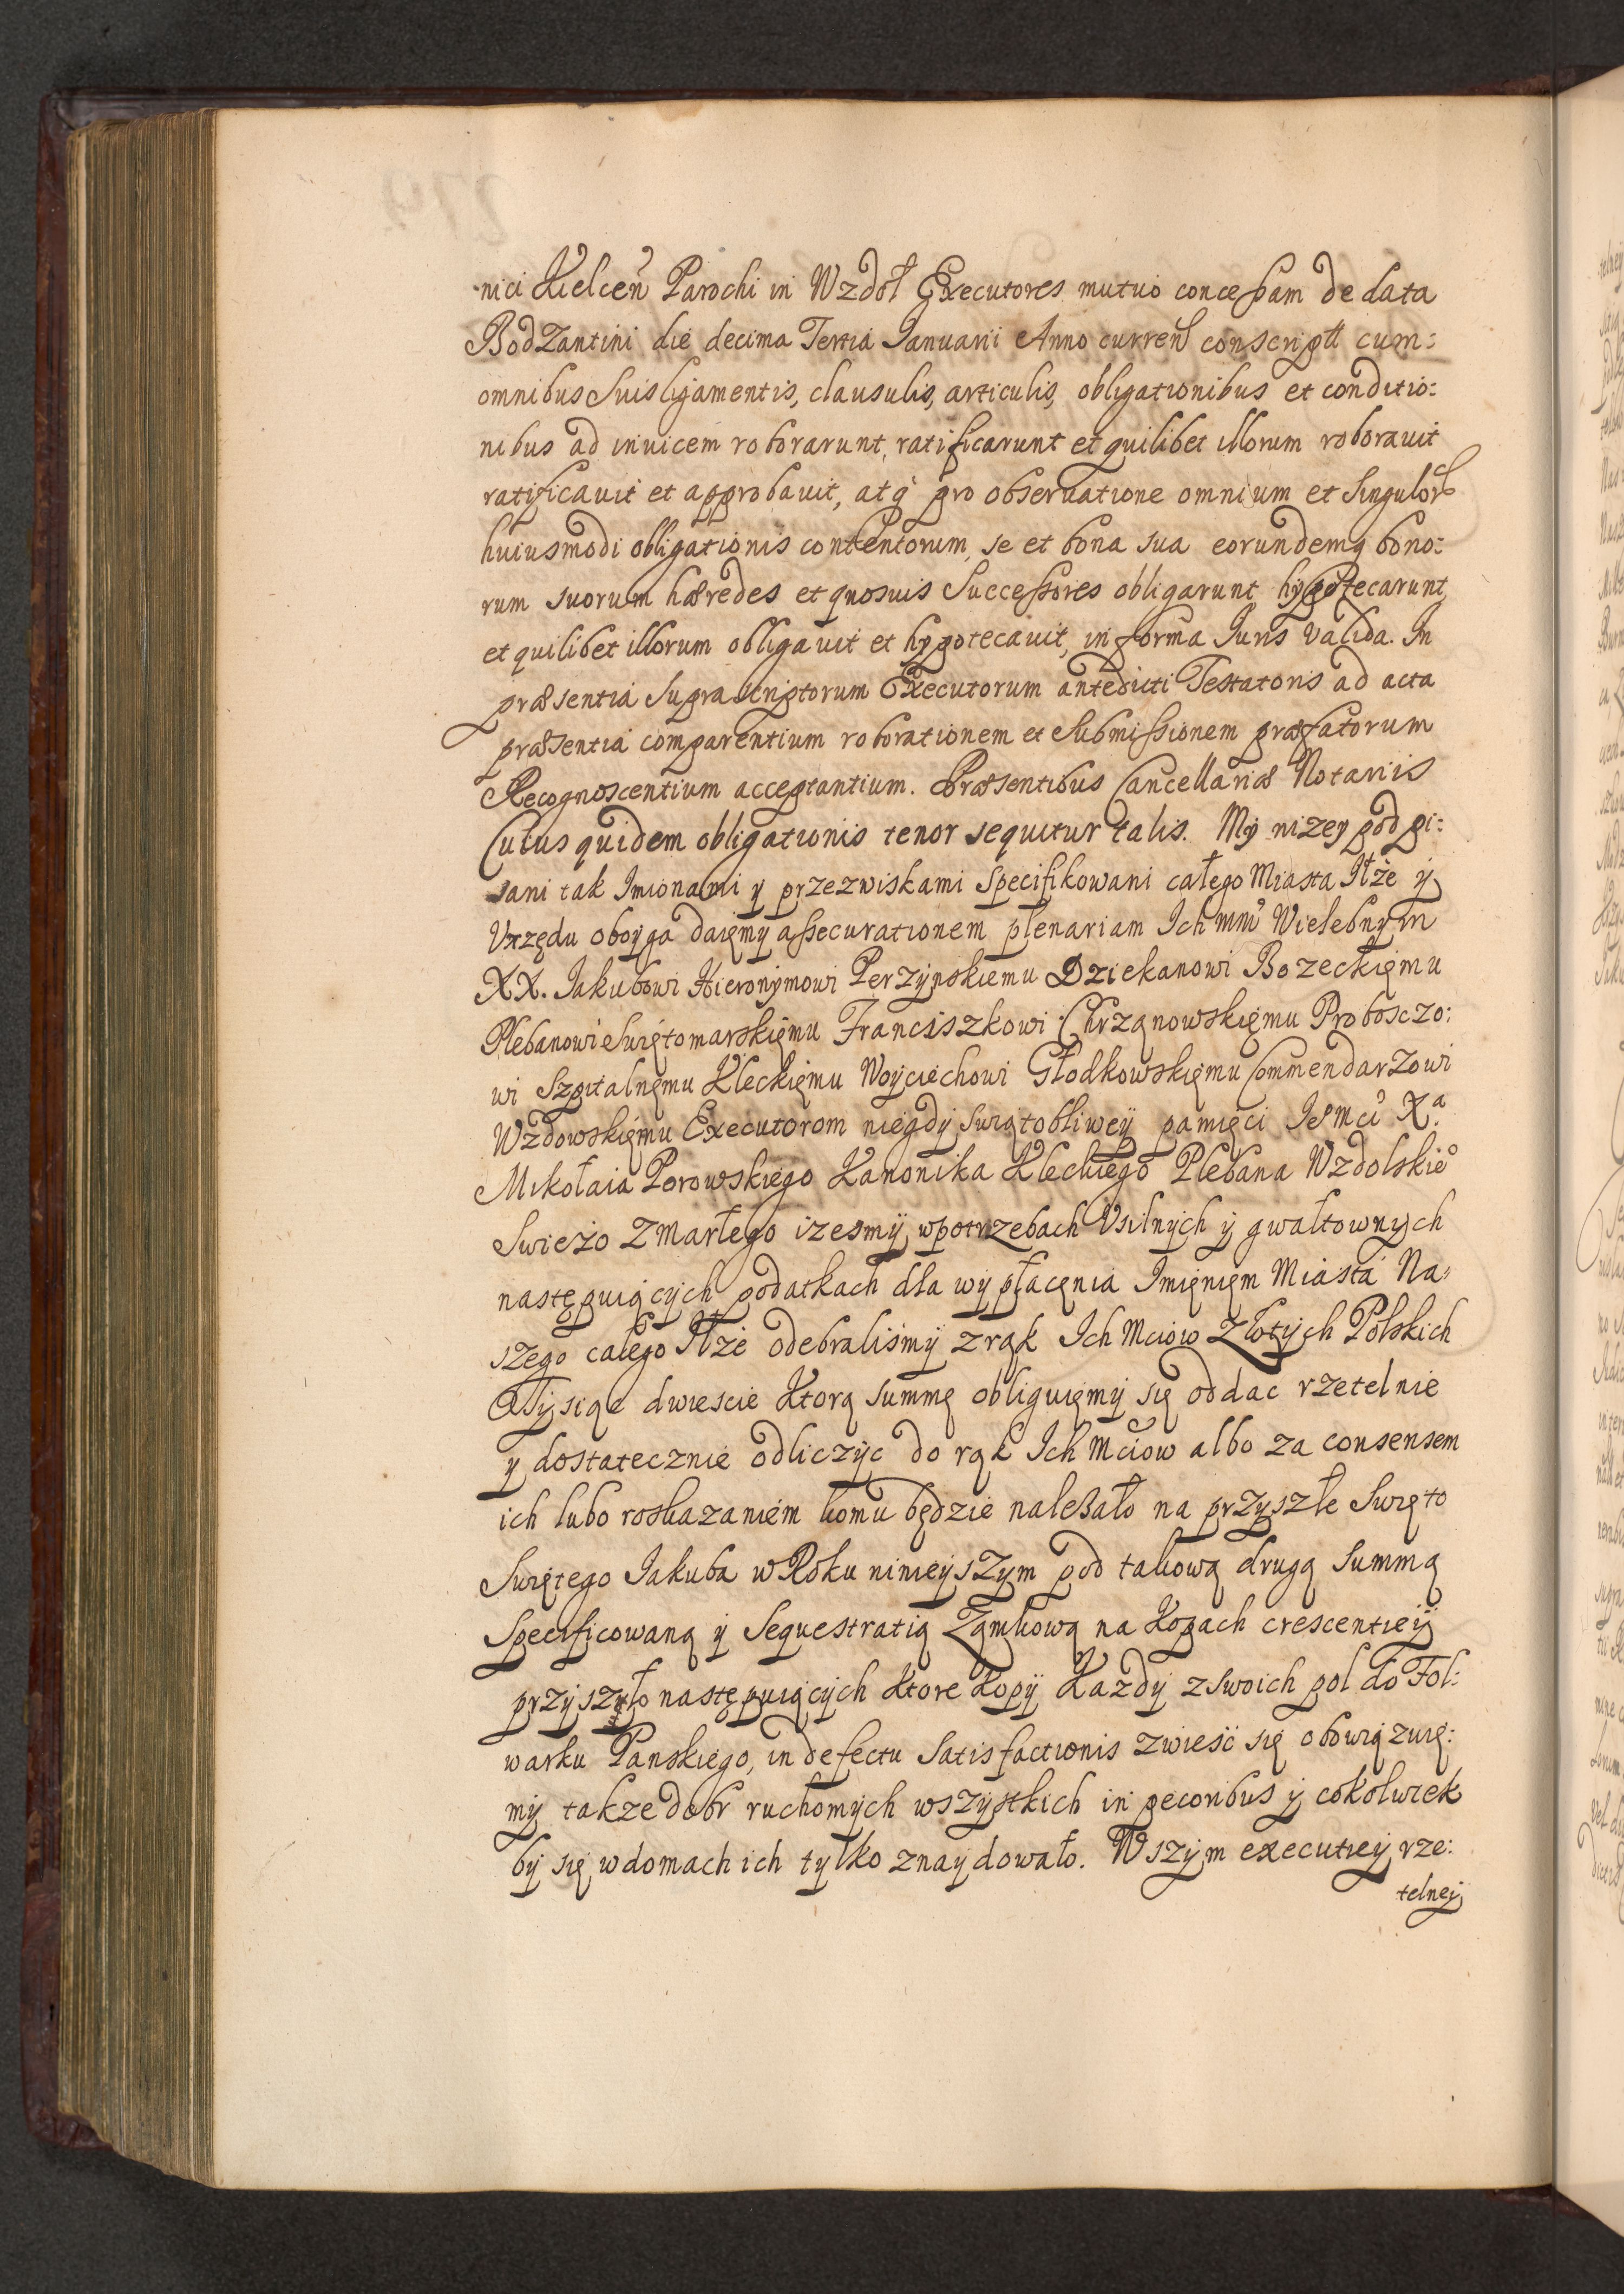 nici Kielceñ Parochi in Wzdoł Executores mutuo concessam de data
Bodzantini die decima Tertia Ianuarii Anno curren conscriptt cum:
omnibus suis ligamentis, clausulis, articulis, obligationibus et conditio:
nibus ad inuicem roborarunt, ratificarunt et quilibet illorum roborauit
ratificauit et approbauit, atq pro obseruatione omnium et singulor
huiusmodi obligationis contentorum, se et bona sua eorundemq bono:
rum suorum hæredes et quosuis Successores obligarunt hypotecarunt,
et quilibet illorum obligauit et hypotecauit, in forma Iuris valida. In
præsentia suprascriptorum Executorum antedicti Testatoris ad acta
præsentia comparentium roborationem et submissionem præfatorum
Recognoscentium acceptantium. Præsentibus Cancellariæ Notariis
Cuius quidem obligationis tenor sequitur talis. Mÿ nizey podpi:
sani tak Imionami y przezwiskami specifikowani całego Miasta Iłże ÿ
Vrzędu oboÿga daięmÿ assecurationem plenariam Ich mm Wielebnÿm
XX. Iakubowi Hieronÿmowi Perzÿnskiemu Dziekanowi Bozeckięmu
Plebanowi Swiętomarskięmu Franciszkowi Chrząnowskięmu Proboszczo:
wi Szpitalnęmu Kleckięmu Woÿciechowi Głodkowskięmu Commendarzowi
Wzdowskięmu Executorom niegdÿ swiątobliweÿ pamięci Ieº Mci Xª.
Mikołaia Porowskiego Kanonika Kleckiego Plebana Wzdolskieº
Swieżo zmarłego izesmÿ wpotrzebach Vsilnÿch ÿ gwałtownych
następuiącÿch podatkach dla wÿpłacęnia Imięnięm Miasta Na:
szego całego Iłże odebralismÿ z rąk Ich Mciow złotÿch Polskich
Tÿsiąc dwiescie Ktorą summę obliguięmÿ się oddac rzetelnie
y dostatecznie odliczÿc do rąk Ich Mciow albo za consensem
ich lubo roskazaniem komu będzie należało na przÿszłe Swięto
Swiętego Iakuba w Roku ninieÿszÿm pod takową drugą summą
specificowaną ÿ Sequestratią Zamkową na Kopach crescentieÿ
przÿszÿło następuiącÿch Ktore Kopÿ Każdÿ z swoich pol do Fol:
warku Panskiego, in defectu satisfactionis zwieść się obowiązuię:
mÿ takze dobr ruchomÿch wszÿstkich in pecoribus ÿ cokolwiek
bÿ się w domach ich tÿlko znaÿdowało. Wszÿm executieÿ rze:
telneÿ